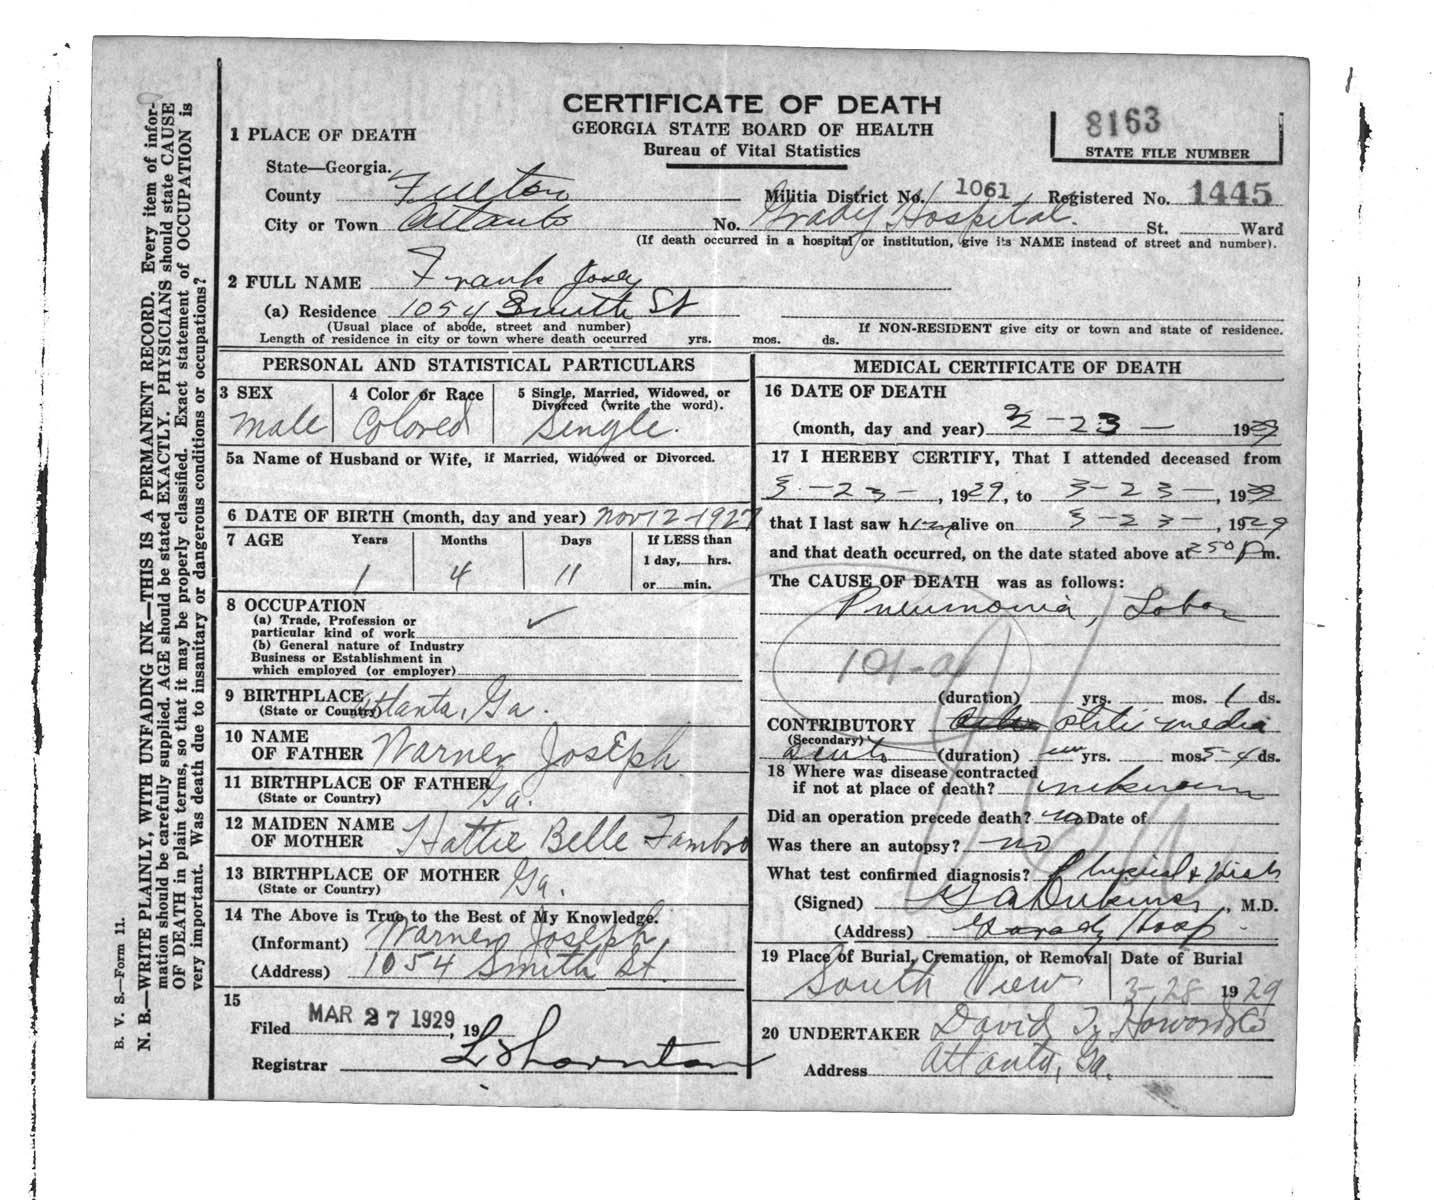 CERTIFICATE OF DEATH
GEORGIA STATE BOARD OF HEALTH
Bureau of Vital Statistics
8163
STATE FILE NUMBER
1 PLACE OF DEATH
State—Georgia.
County Fulton
Militia District No. 1061 Registered No. 1445
City or Town Atlanta No. Grady Hospital. St. Ward
(If death occurred in a hospital or institution, give its NAME instead of street and number).
2 FULL NAME Frank
(a) Residence 1054 Smith St
(Usual place of abode, street and number)
If NON-RESIDENT give city or town and state of residence.
Length of residence in city or town where death occurred yrs. mos. ds.
PERSONAL AND STATISTICAL PARTICULARS
3 SEX
Male
4 Color or Race
Colored
5 Single, Married, Widowed, or
Divorced (write the word).
Single.
5a Name of Husband or Wife, if Married, Widowed or Divorced.
6 DATE OF BIRTH (month, day and year) Nov 12-1927
7 AGE Years Months Days If LESS than
1 day, hrs.
or min.
1 4 11
8 OCCUPATION
(a) Trade, Profession or
particular kind of work
(b) General nature of Industry
Business or Establishment in
which employed (or employer)
9 BIRTHPLACE Atlanta, Ga.
(State or Country)
10 NAME
OF FATHER Warner Joseph
11 BIRTHPLACE OF FATHER
(State or Country) Ga.
12 MAIDEN NAME
OF MOTHER Hattie Belle Fambro
13 BIRTHPLACE OF MOTHER
(State or Country) Ga.
14 The Above is True to the Best of My Knowledge.
(Informant) Warner Joseph
(Address) 1054 Smith St.
15
Filed MAR 27 1929, 19
Registrar
MEDICAL CERTIFICATE OF DEATH
16 DATE OF DEATH
(month, day and year) 3-23- 1929
17 I HEREBY CERTIFY, That I attended deceased from
3-23-, 1929, to 3-23-, 1929
that I last saw him alive on 3-23-, 1929
and that death occurred, on the date stated above at 250 Pm.
The CAUSE OF DEATH was as follows:
Pneumonia, Lobar
101-a
(duration) yrs. mos. 1 ds.
CONTRIBUTORY otitis media
(Secondary)
acute (duration) yrs. mos. 3-4 ds.
18 Where was disease contracted
if not at place of death? unknown
Did an operation precede death? no Date of
Was there an autopsy? no
What test confirmed diagnosis? Physical &
(Signed) , M.D.
(Address) Grady Hosp.
19 Place of Burial, Cremation, or Removal Date of Burial
South View 3-28 1929
20 UNDERTAKER David T. Howard & Co
Address Atlanta, Ga.
N. B.—WRITE PLAINLY, WITH UNFADING INK—THIS IS A PERMANENT RECORD. Every item of infor-
mation should be carefully supplied. AGE should be stated EXACTLY. PHYSICIANS should state CAUSE
OF DEATH in plain terms, so that it may be properly classified. Exact statement of OCCUPATION is
very important. Was death due to insanitary or dangerous conditions or occupations?
B. V. S.—Form 11.